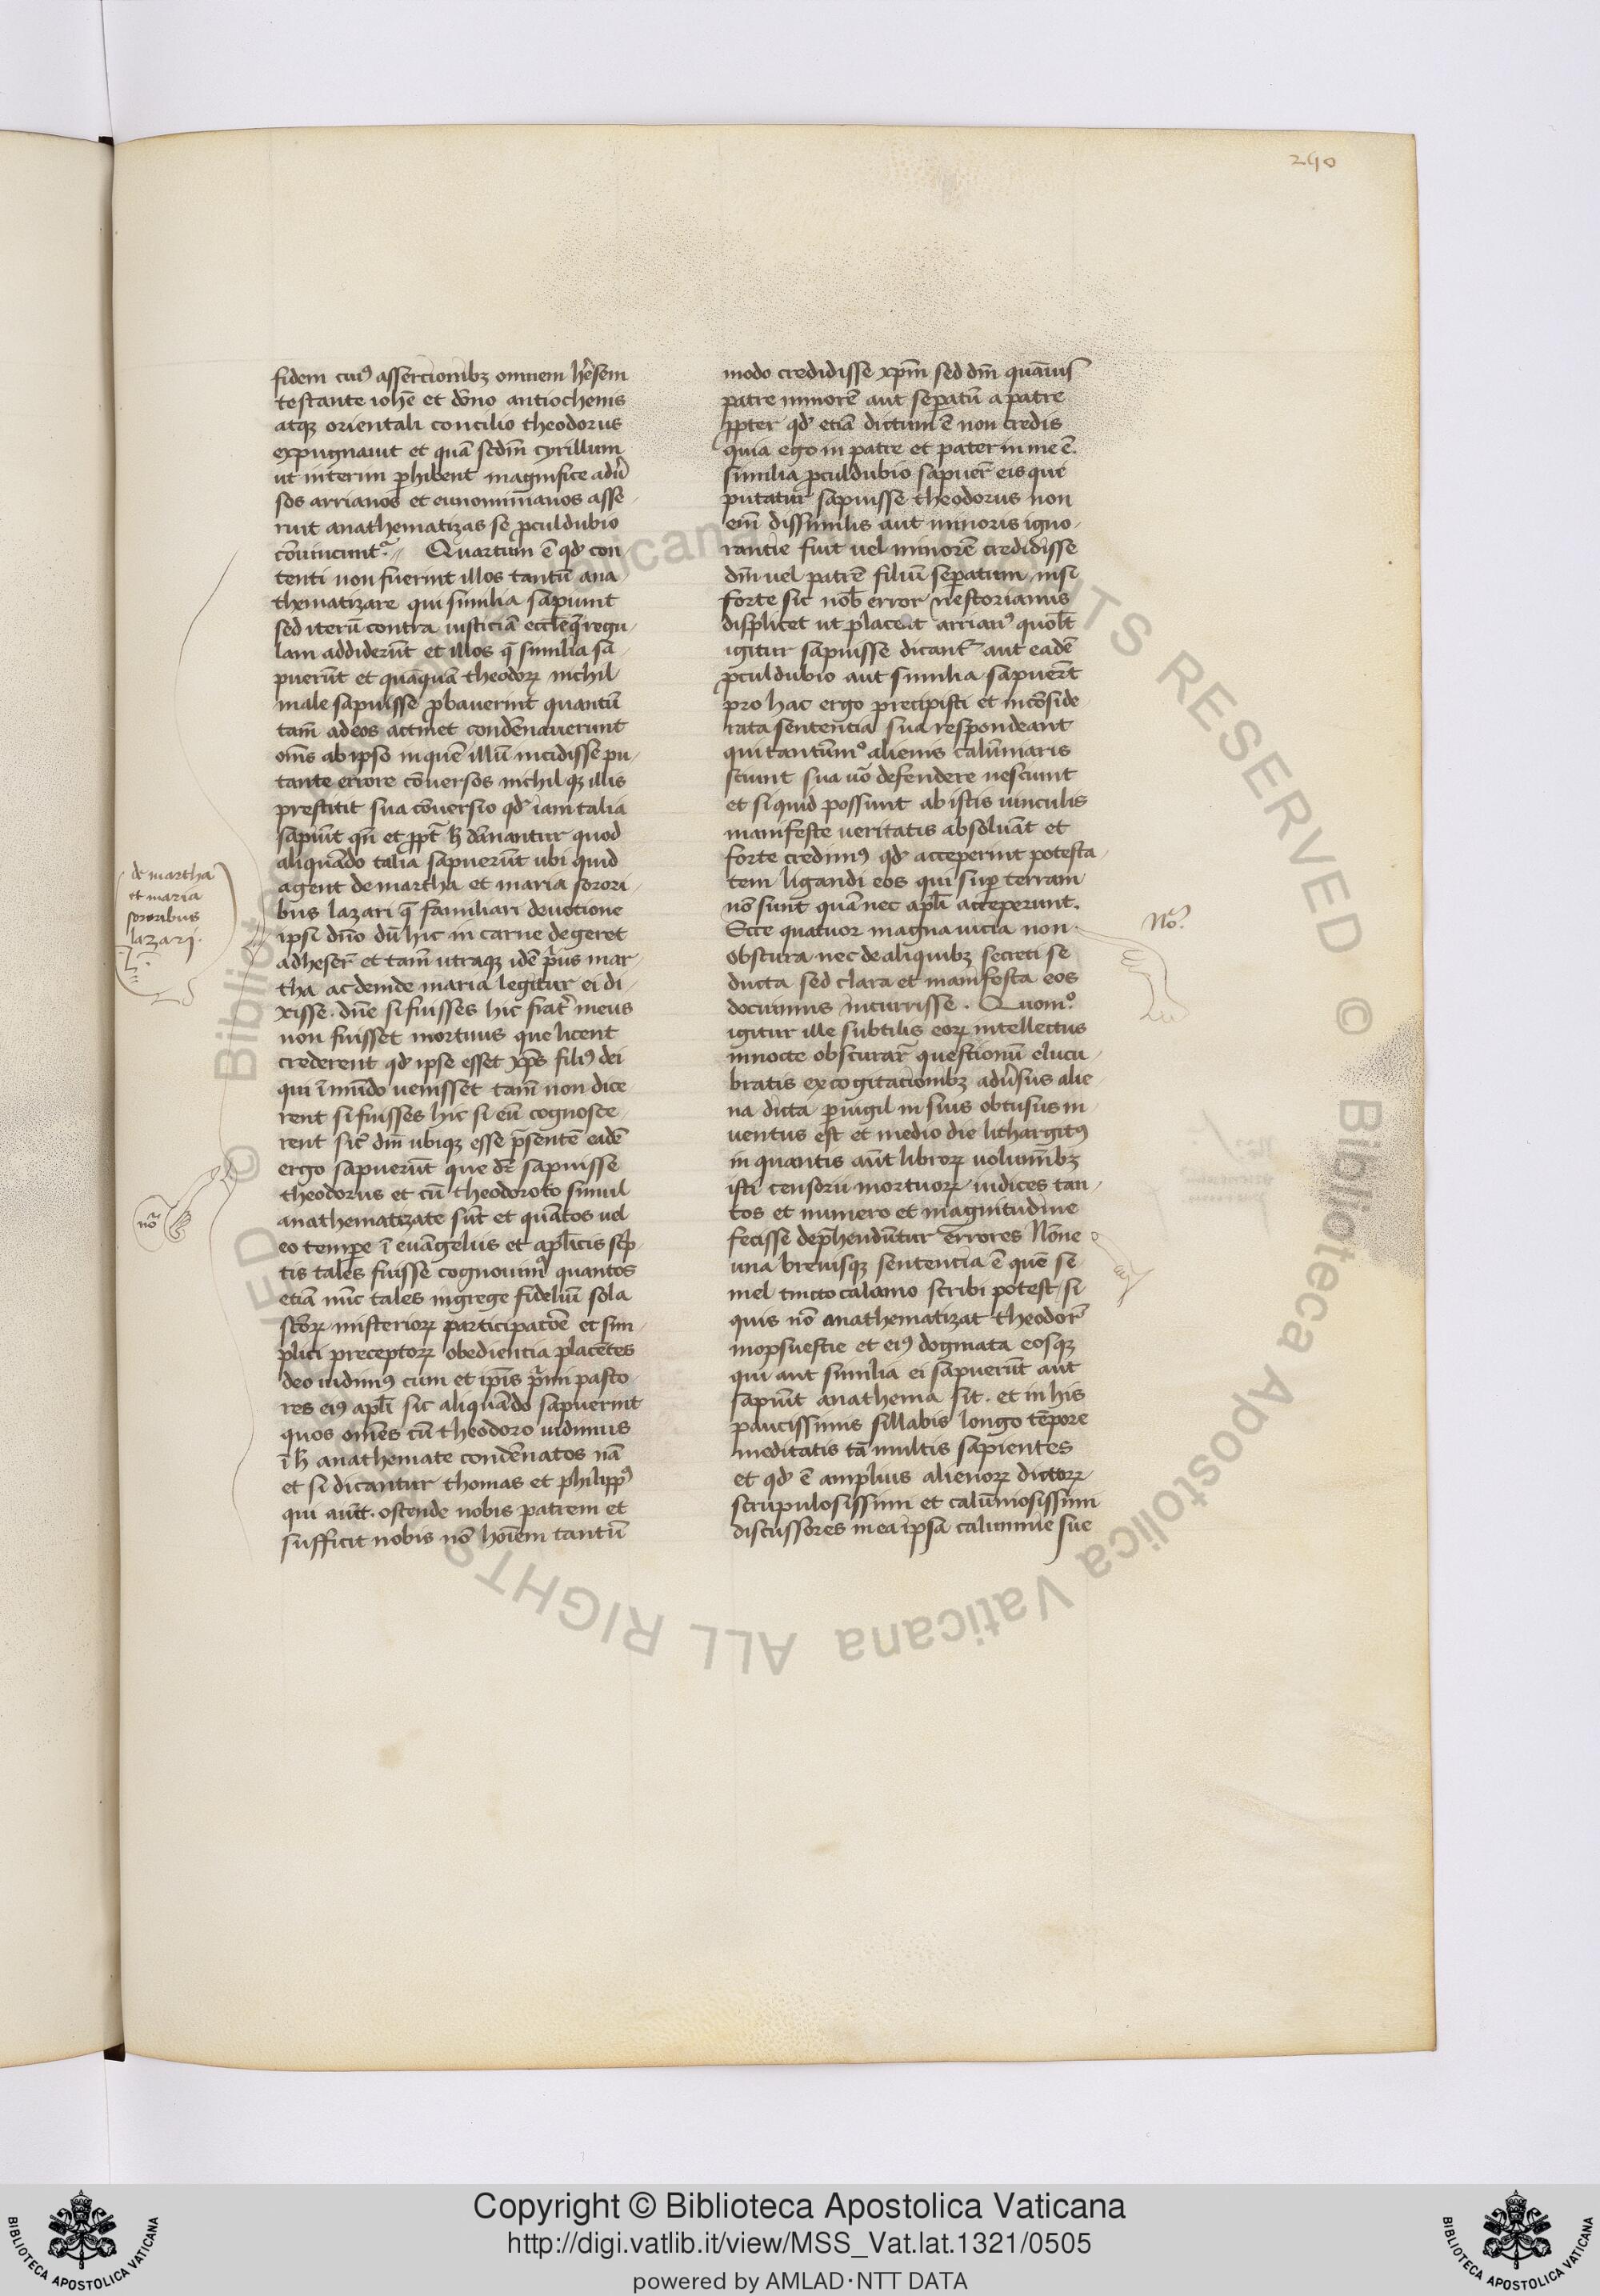 240
fidem cuiꝰ assercionibꝫ omnem hr̄esem
testante ioh̄e et dōno antiochenis
atqꝫ orientali concilio theodorus
expugnauit et quā scd̄m cyrillum
ut interim ꝓhibent magnifice adūˢ
sos arrianos et eunominianos asse
ruit anathematizās se ꝓculdubio
cōuincunt᷑. Quartum ē qd̄ con
tenti non fuerint illos tantū ana
thematizare qui similia sapiunt
sed iterū contra iusticiā eccl̄eqꝫ regu
lam addiderūt et illos q̄ similia sa
puerūt et quāquā theodoꝝ nichil
male sapuisse ꝓbauerint quantū
tam̄ ad eos actinet condēnauerunt
om̄s ab ipso in quē illū incidisse pu
tante errore cōuersos nichilqꝫ illis
prestitit sua cōuersio qd̄ iam talia
sapiūt qn̄ et ꝓpt̄ h̄ dānantur quod
aliquādo talia sapuerūt ubi quid
agent de martha et maria sorori
bus lazari q̄ familiari deuotione
ipsi dn̄o dū hic in carne degeret
adheser̄ et tam̄ utraqꝫ idē p̄us mar
tha ac deinde maria legitur ei di
xisse. dn̄e si fuisses hic frat̄ meus
non fuisset mortuus que licent
crederent qd̄ ipse esset xp̄s filiꝰ dei
qui ī mūdo uenisset tam̄ non dice
rent si fuisses hic si eū cognosce
rent sic̄ dm̄ ubiqꝫ esse p̄sentē eadē
ergo sapuerūt que dr̄ sapuisse
theodorus et cū theodoroto simul
anathematizate sūt et quātos uel
eo tempe ī euāgeliis et apl̄icis scp̄
tis tales fuisse cognouimꝰ quantos
etiā nūc tales in grege fideliū sola
sc̄oꝝ misterioꝝ participatōe et sim
plici preceptoꝝ obedientia placētes
deo uidimꝰ cum et ip̄is p̄mi pasto
res eiꝰ apl̄i sic aliquādo sapuerint
quos omēs cū theodoro uidimus
ī h̄ anathemate condēnatos nā
et si dicantur thomas et philippꝰ
qui aiūt. ostende nobis patrem et
sufficit nobis nō hoīem tantū
de martha
et maria
sororibus
lazari.
nō
modo credidisse xp̄m sed dm̄ quāuis
patre minorē aut sepatū a patre
ꝓpter qd̄ etiā dictum ē non credis
quia ego in patre et pater in me ē.
similia ꝓculdubio sapuer̄ eis que
putatur sapuisse theodorus non
eni᷑ dissimilis aut minoris igno
rantie fuit uel minorē credidisse
dm̄ uel patrē filiū sepatum nisi
forte sic nob̄ error nestorianus
displicet ut placeat arrianꝰ quol̄t
igitur sapuisse dicant᷑ aut eadē
ꝓculdubio aut similia sapuer̄t
pro hac ergo precipisti et incōside
rata sentencia sua respondeant
qui tantūmº alienis calūniaris
sciunt sua uō defendere nesciunt
et si quid possunt ab istis uinculis
manifeste ueritatis absoluāt et
forte credimꝰ qd̄ acceperint potesta
tem ligandi eos qui sup terram
nō sunt quā nec apl̄i acceperunt.
Ecce quatuor magna uicia non
obscura nec de aliquibꝫ secreti se
ducta sed clara et manifesta eos
docuimus incurrisse. Quomº
igitur ille subtilis eoꝝ intellectus
in nocte obscurar̄ questionū elucu
bratis excogitationibꝫ adūsus alie
na dicta puigil in suis obtusus in
uentus est et medio die lithargitꝰ
in quantis aūt libroꝝ uolumībꝫ
isti censorii mortuoꝝ iudices tan
tos et numero et magnitudine
fecisse dep̄hendūtur errores Nōne
una breuisqꝫ sentencia ē quē se
mel tincto calamo scribi potest si
quis nō anathematizat theodor̄
mopsuestie et eiꝰ dogmata eosqꝫ
qui aut similia ei sapuerūt aut
sapiūt anathema sit. et in his
paucissimis sillabis longo tēpore
meditatis tā multis sapientes
et qd̄ ē amplius alienoꝝ dictoꝝ
scrupulosissimi et calūniosissimi
discussores mea ipsa calumnie sue
Nō.
Copyright © Biblioteca Apostolica Vaticana
http://digi.vatlib.it/view/MSS_Vat.lat.1321/0505
powered by AMLAD·NTT DATA
BIBLIOTECA APOSTOLICA VATICANA
BIBLIOTECA APOSTOLICA VATICANA
© Biblioteca Apostolica Vaticana ALL RIGHTS RESERVED
© Biblioteca Apostolica Vaticana ALL RIGHTS RESERVED